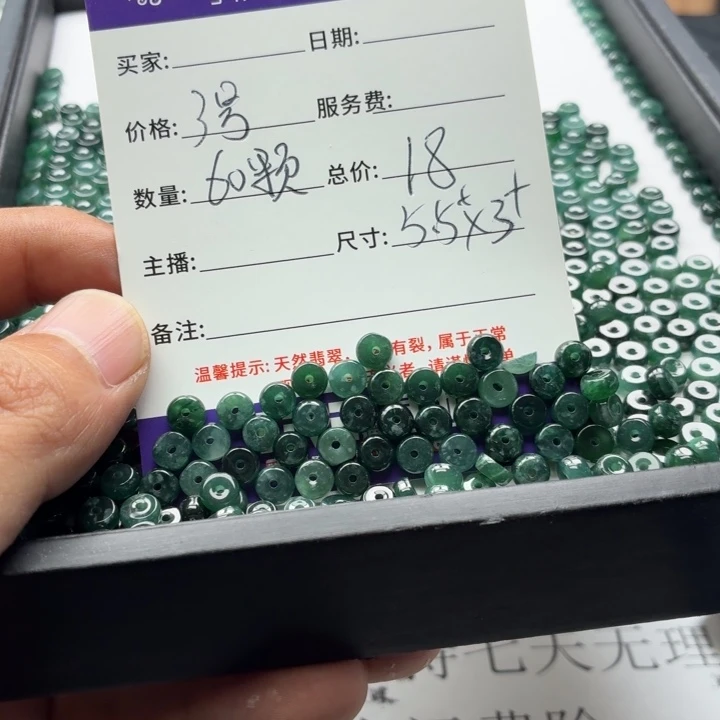 买家: 日期:
价格: 3号 服务费:
数量: 60颗 总价: 18
主播: 尺寸: 5.5+×3+
备注:
温馨提示: 天然翡翠, 有裂, 属于正常
者, 请谨 单
七天无理